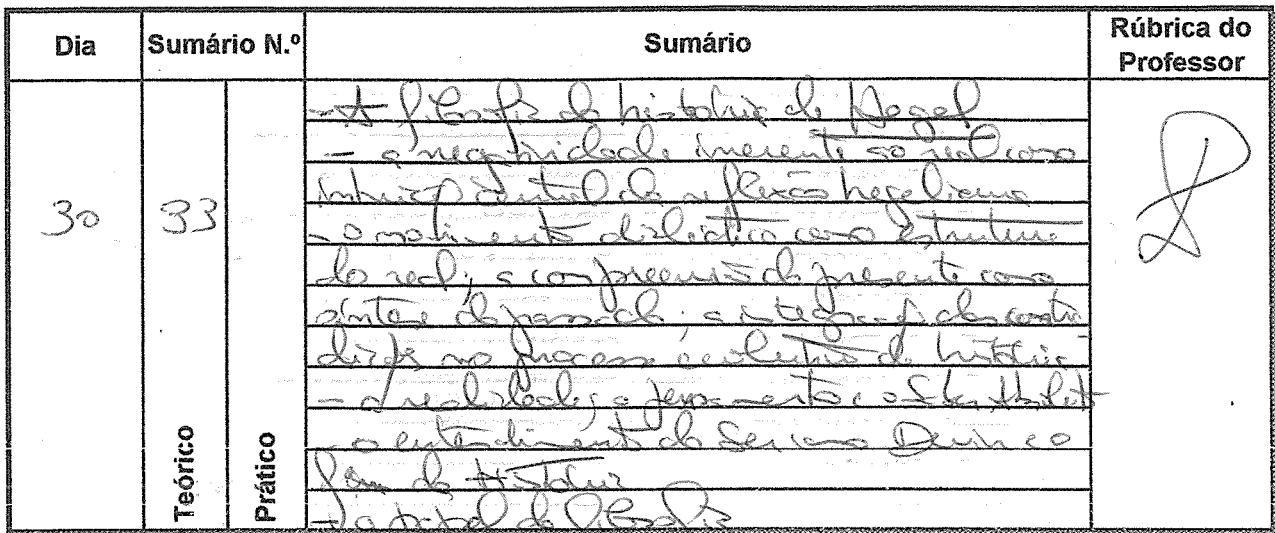 Dia Sumário N.º Sumário Rúbrica do Professor
30 33
Teórico Prático
- A filosofia da história de Hegel
- a negatividade inerente ao real como
intuição central da reflexão hegeliana
- o movimento dialéctico como estrutura
do real; a compreensão do presente como
síntese do passado; a integração das contra
dições no processo evolutivo da história
- a realidade, o pensamento e o
- o entendimento do Ser como Devir e o
fim da História
- o papel da filosofia